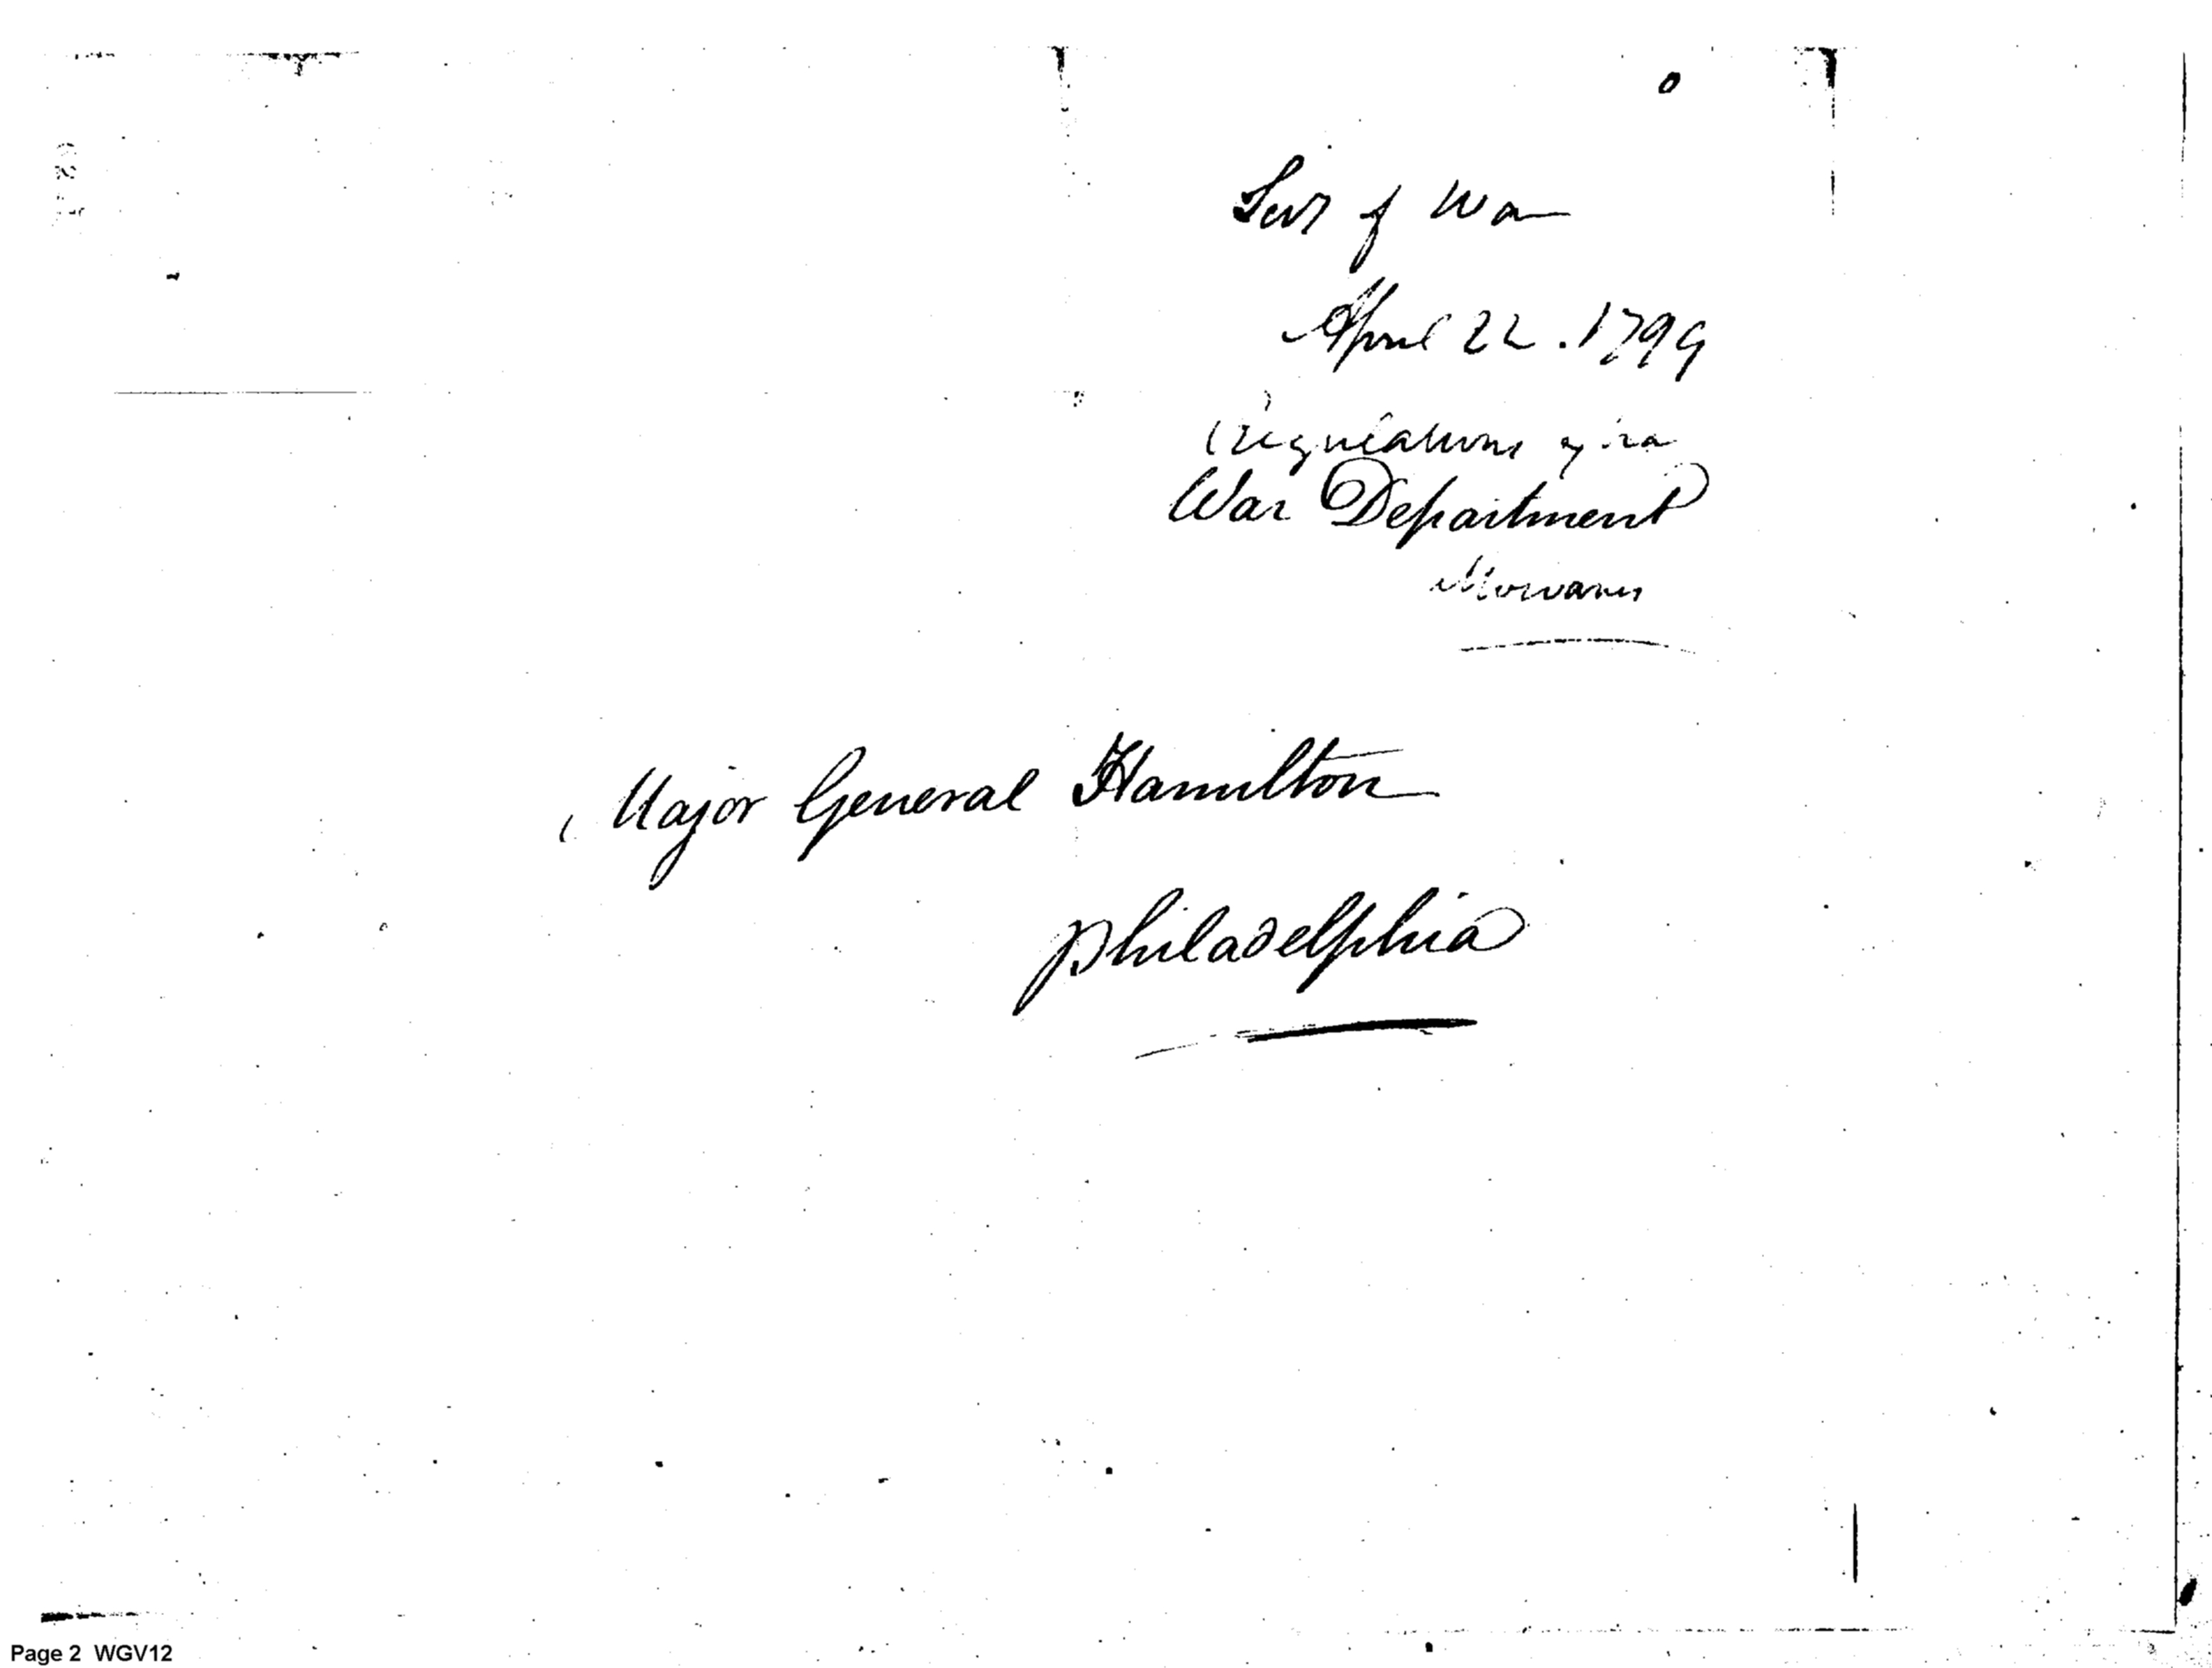 Secy of War
April 22. 1799
Regulations of the
War Department
Major General Hamilton
Philadelphia
Page 2 WGV12